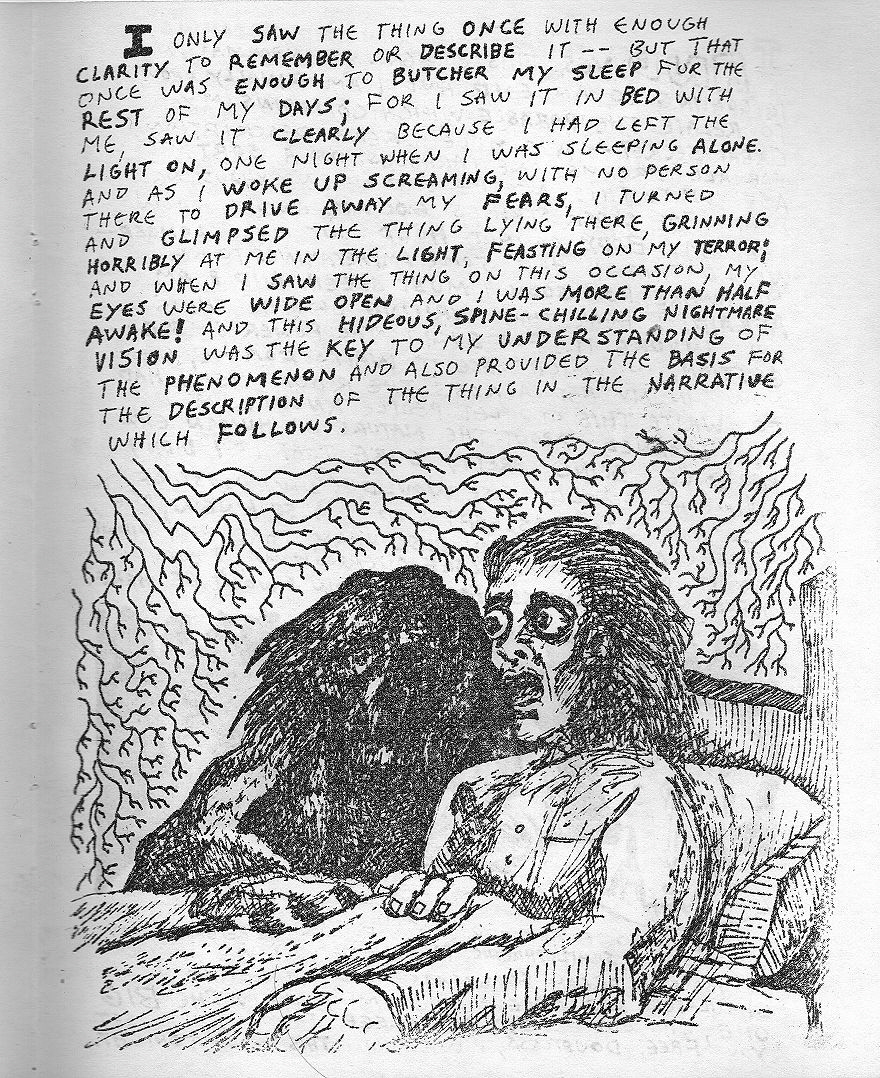 I ONLY SAW THE THING ONCE WITH ENOUGH
CLARITY TO REMEMBER OR DESCRIBE IT -- BUT THAT
ONCE WAS ENOUGH TO BUTCHER MY SLEEP FOR THE
REST OF MY DAYS; FOR I SAW IT IN BED WITH
ME, SAW IT CLEARLY BECAUSE I HAD LEFT THE
LIGHT ON, ONE NIGHT WHEN I WAS SLEEPING ALONE.
AND AS I WOKE UP SCREAMING, WITH NO PERSON
THERE TO DRIVE AWAY MY FEARS, I TURNED
AND GLIMPSED THE THING LYING THERE, GRINNING
HORRIBLY AT ME IN THE LIGHT, FEASTING ON MY TERROR;
AND WHEN I SAW THE THING ON THIS OCCASION, MY
EYES WERE WIDE OPEN AND I WAS MORE THAN HALF
AWAKE! AND THIS HIDEOUS, SPINE-CHILLING NIGHTMARE
VISION WAS THE KEY TO MY UNDERSTANDING OF
THE PHENOMENON AND ALSO PROVIDED THE BASIS FOR
THE DESCRIPTION OF THE THING IN THE NARRATIVE
WHICH FOLLOWS.